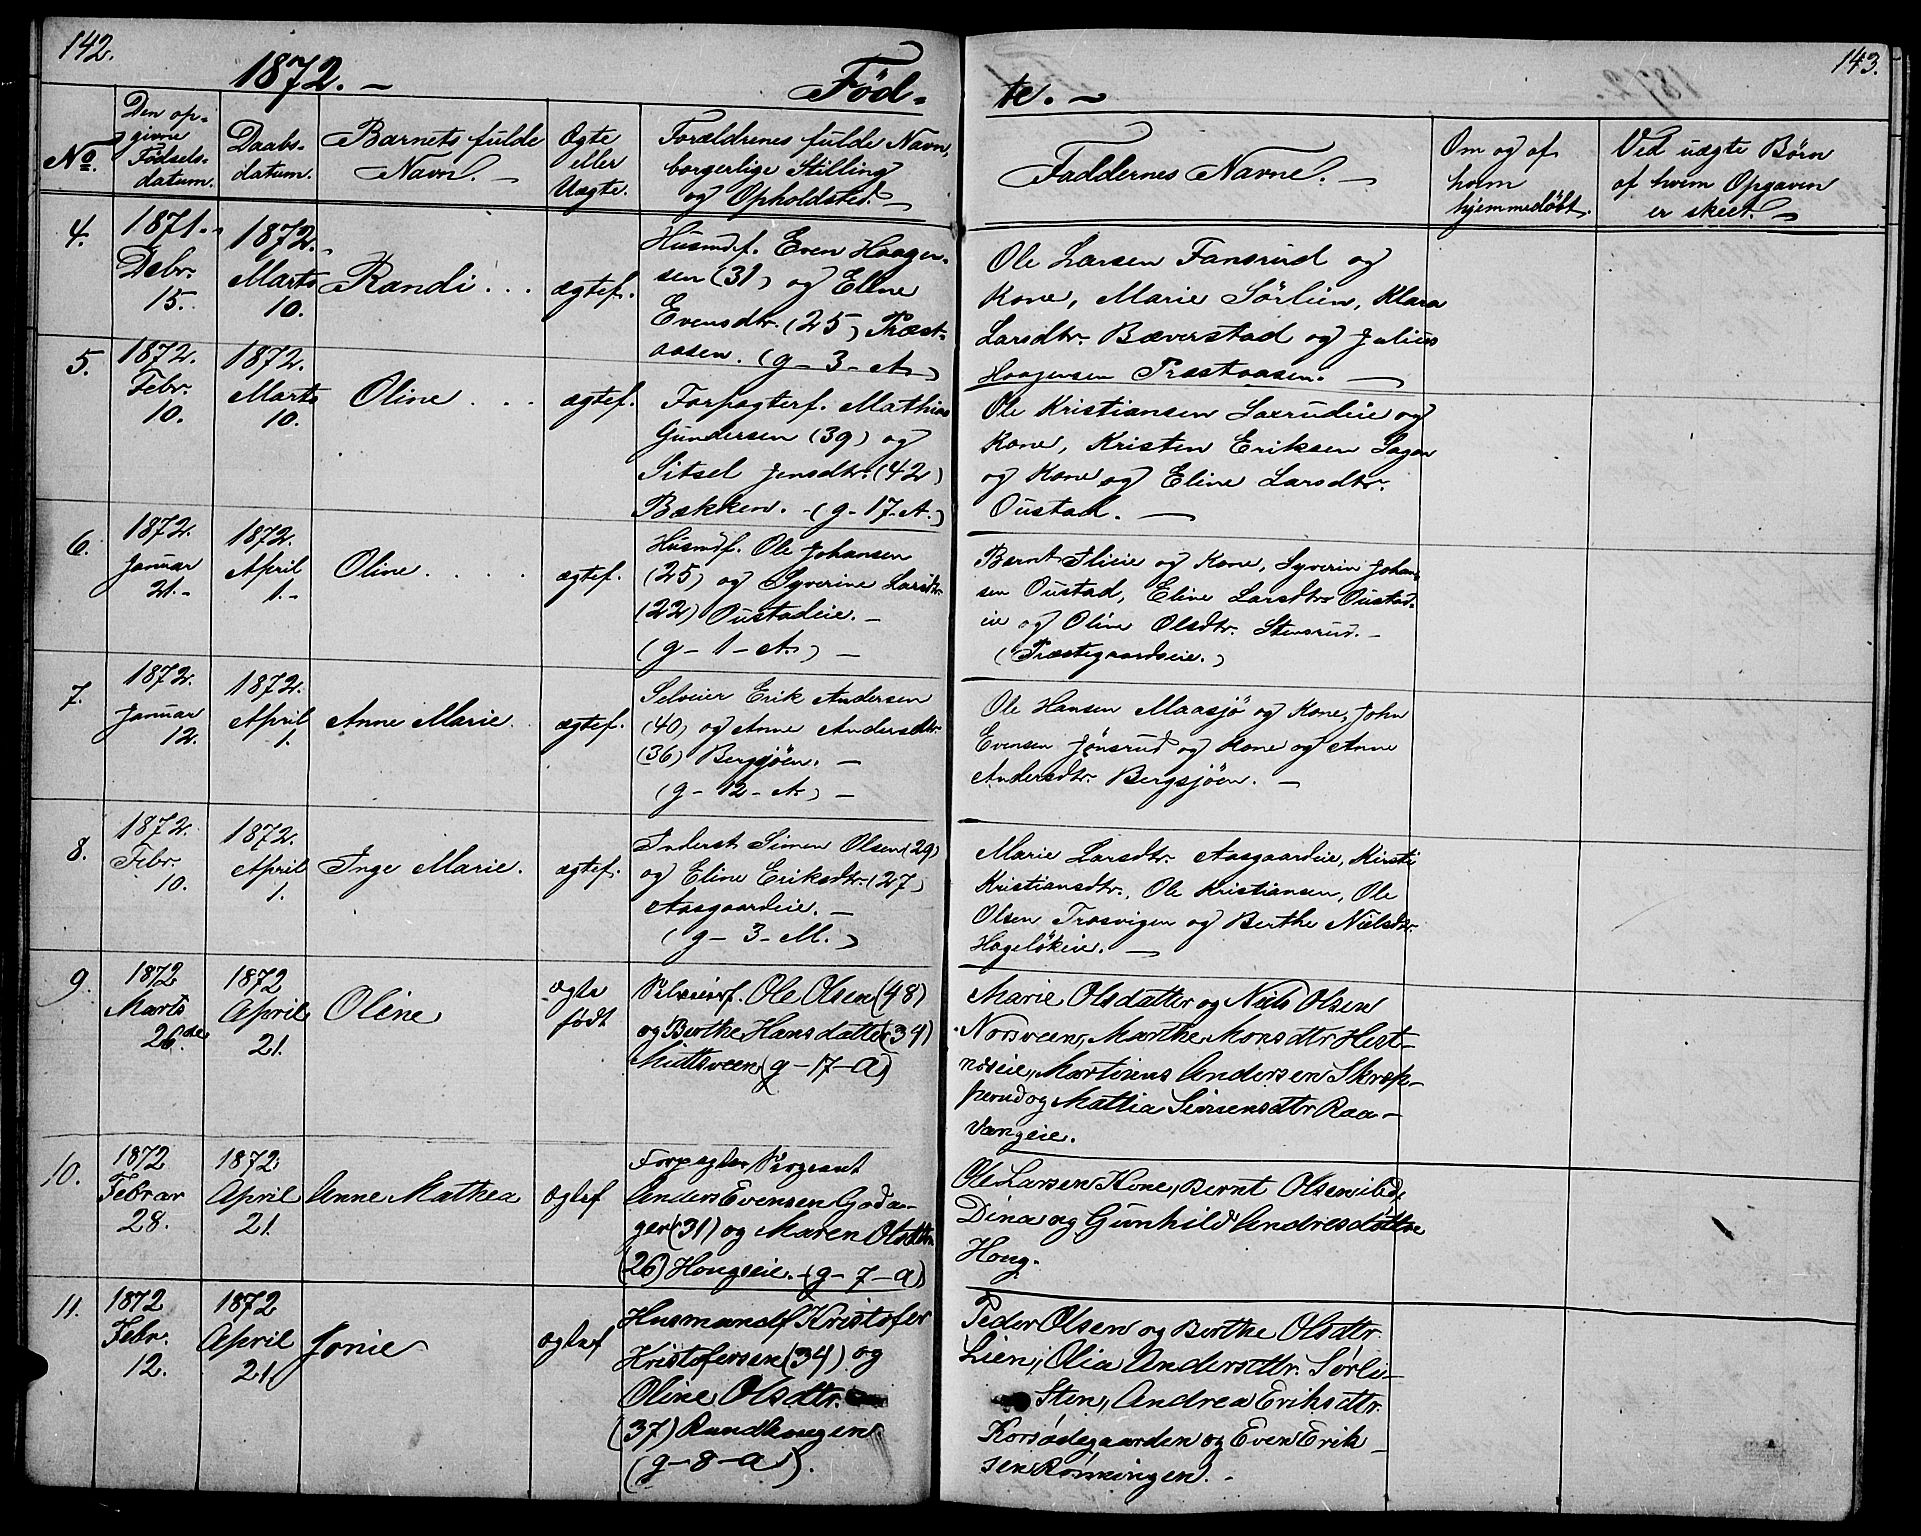 142.
1872. –
Fød-
No.
Den op-
givne
Fødsels-
datum.
Daabs-
datum.
Barnets fulde
Navn. –
Ægte
eller
Uægte.
Forældrenes fulde Navn,
borgerlige Stilling
og Opholdsted. –
4.
1871.
Debr.
15.
1872.
Marts
10.
Randi . . .
ægtef.
Husmdf. Even Haagen-
sen (31) og Eline
Evensdtr. (25) Præst-
aasen. (g – 3 – A.)
5.
1872.
Febr.
10.
1872.
Marts
10.
Oline . . .
ægtef.
Forpagterf. Mathias
Gundersen (39) og
Sitsel Jensdtr. (42)
Bækken. – (g – 17 – A.)
6.
1872.
Januar
21. –
1872.
April
1. –
Oline . . . .
ægtef.
Husmdf. Ole Johansen
(25) og Syverine Larsdtr.
(22) Oustadeie. –
(g – 1 – A.) –
7.
1872.
Januar
12.
1872.
April
1.
Anne Marie.
ægtef.
Selveier Erik Andersen
(40) og Anne Andersdtr.
(36) Bergsjöen. –
(g – 12 – A.) –
8.
1872.
Febr.
10.
1872.
April
1.
Inge Marie.
ægtef.
Inderst Simen Olsen (29)
og Eline Eriksdtr. (27)
Aasgaardeie. –
(g – 3 – M.)
9.
1872
Marts
26de
1872
April
21.
Oline
ægte
født
Selveierf. Ole Olsen (48)
og Berthe Hansdatter (34)
(g – 17 – a)
10.
1872
Februar
28.
1872
April
21.
Anne Mathea
ægtef
Forpagter Sergeant
Anders Evensen Goda-
ger (31) og Maren Olsdtr.
(26) Hougseie. – (g – 7 – a)
11.
1872
Febr.
12.
1872
April
21
Jonie
ægtef
Husmandf Kristofer
Kristofersen (34) og
Oline Olsdtr.
(37) Rundhougen
(g – 8 – a).
143.
te. –
Faddernes Navne. –
Om og af
hvem
hjemmedöbt.
Ved uægte Börn
af hvem Opgaven
er skeet. –
Ole Larsen Fansrud og
Kone, Marie Sörlien, Klara
Larsdtr. Bæverstad og Julius
Haagensen Præstaasen. –
Ole Kristiansen Laxrudeie og
Kone, Kristen Eriksen Sagen
og Kone og Eline Larsdtr.
Oustad. –
Bernt Slieie og Kone, Syverin Johan-
sen Oustad, Eline Larsdtr Oustad-
eie og Oline Olsdtr. Stensrud. –
(Præstegaardseie.)
Ole Hansen Maasjö og Kone, John
Evensen Jönsrud og Kone og Anne
Andersdtr. Bergsjöen. –
Marie Larsdtr. Aasgaardeie, Kirsti
Kristiansdtr., Ole Kristiansen, Ole
Olsen Trosvigen og Berthe Nielsdtr.
Hagelökeie. –
Marie Olsdatter og Niels Olsen
Norsveen, Marthe Monsdtr Hest-
næseie, Martinus Andersen Skrep-
perud og Mattia Simensdtr Raa-
vangeie.
Ole Larsen Kone, Bernt Olsen
Dina og Gunhild Andresdatter
Houg.
Peder Olsen og Berthe Olsdtr
Lien, Olia Andersdtr. Sørli-
Sten, Andrea Eriksdtr.
Korsødegaarden og Even Erik-
sen Rønningen. –